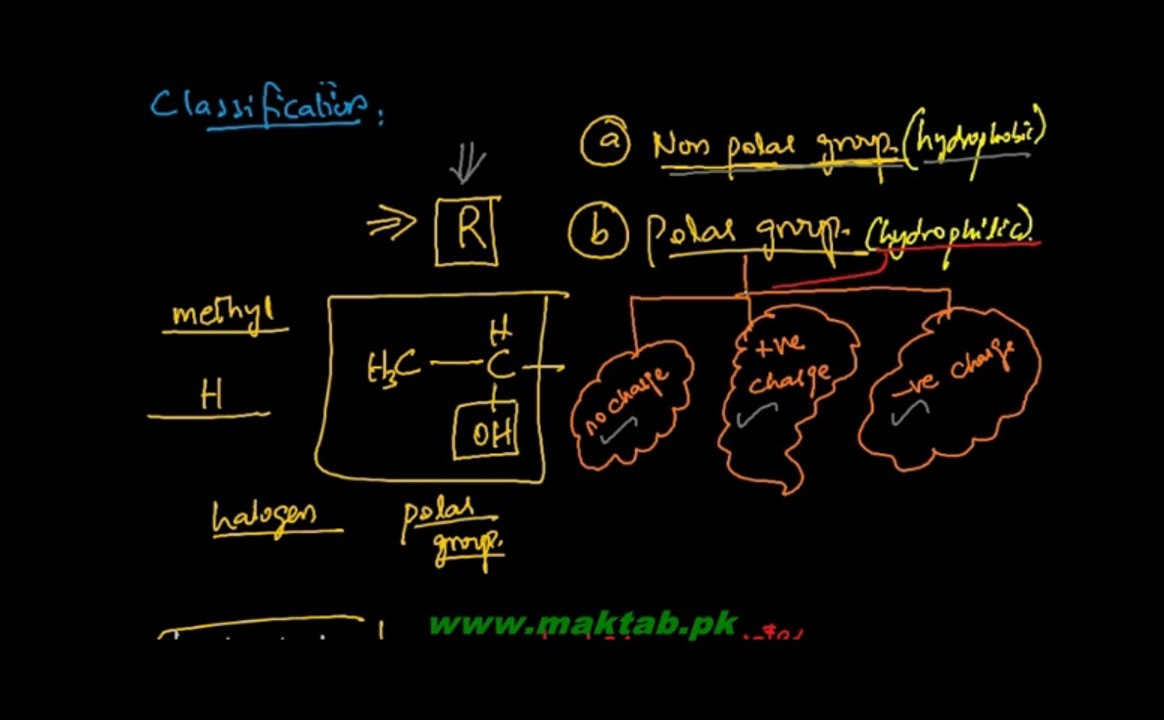 Classification:
(a) Non polar group. (hydrophobic)
⇒ R
(b) Polar group. (hydrophilic).
methyl
H
H₃C — C —
H
OH
no charge
+ve
charge
-ve charge
halogen
polar
group.
www.maktab.pk